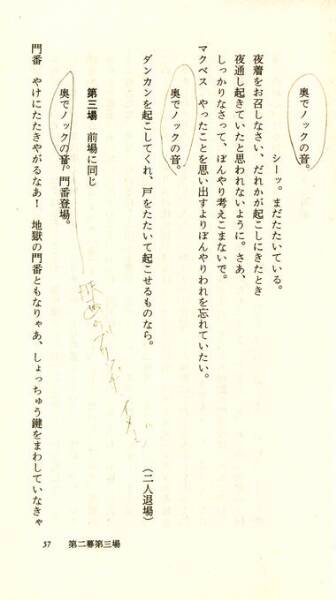 奥でノックの音。
シーッ。まだたたいている。
夜着をお召しなさい、だれかが起こしにきたとき
夜通し起きていたと思われないように。さあ、
しっかりなさって、ぼんやり考えこまないで。
マクベス　やったことを思い出すよりぼんやりわれを忘れていたい。
奥でノックの音。
ダンカンを起こしてくれ、戸をたたいて起こせるものなら。
（二人退場）
第三場　前場に同じ
奥でノックの音。門番登場。
門番　やけにたたきやがるなあ！　地獄の門番ともなりゃあ、しょっちゅう鍵をまわしていなきゃ
の
イメージ
57　第二幕第三場